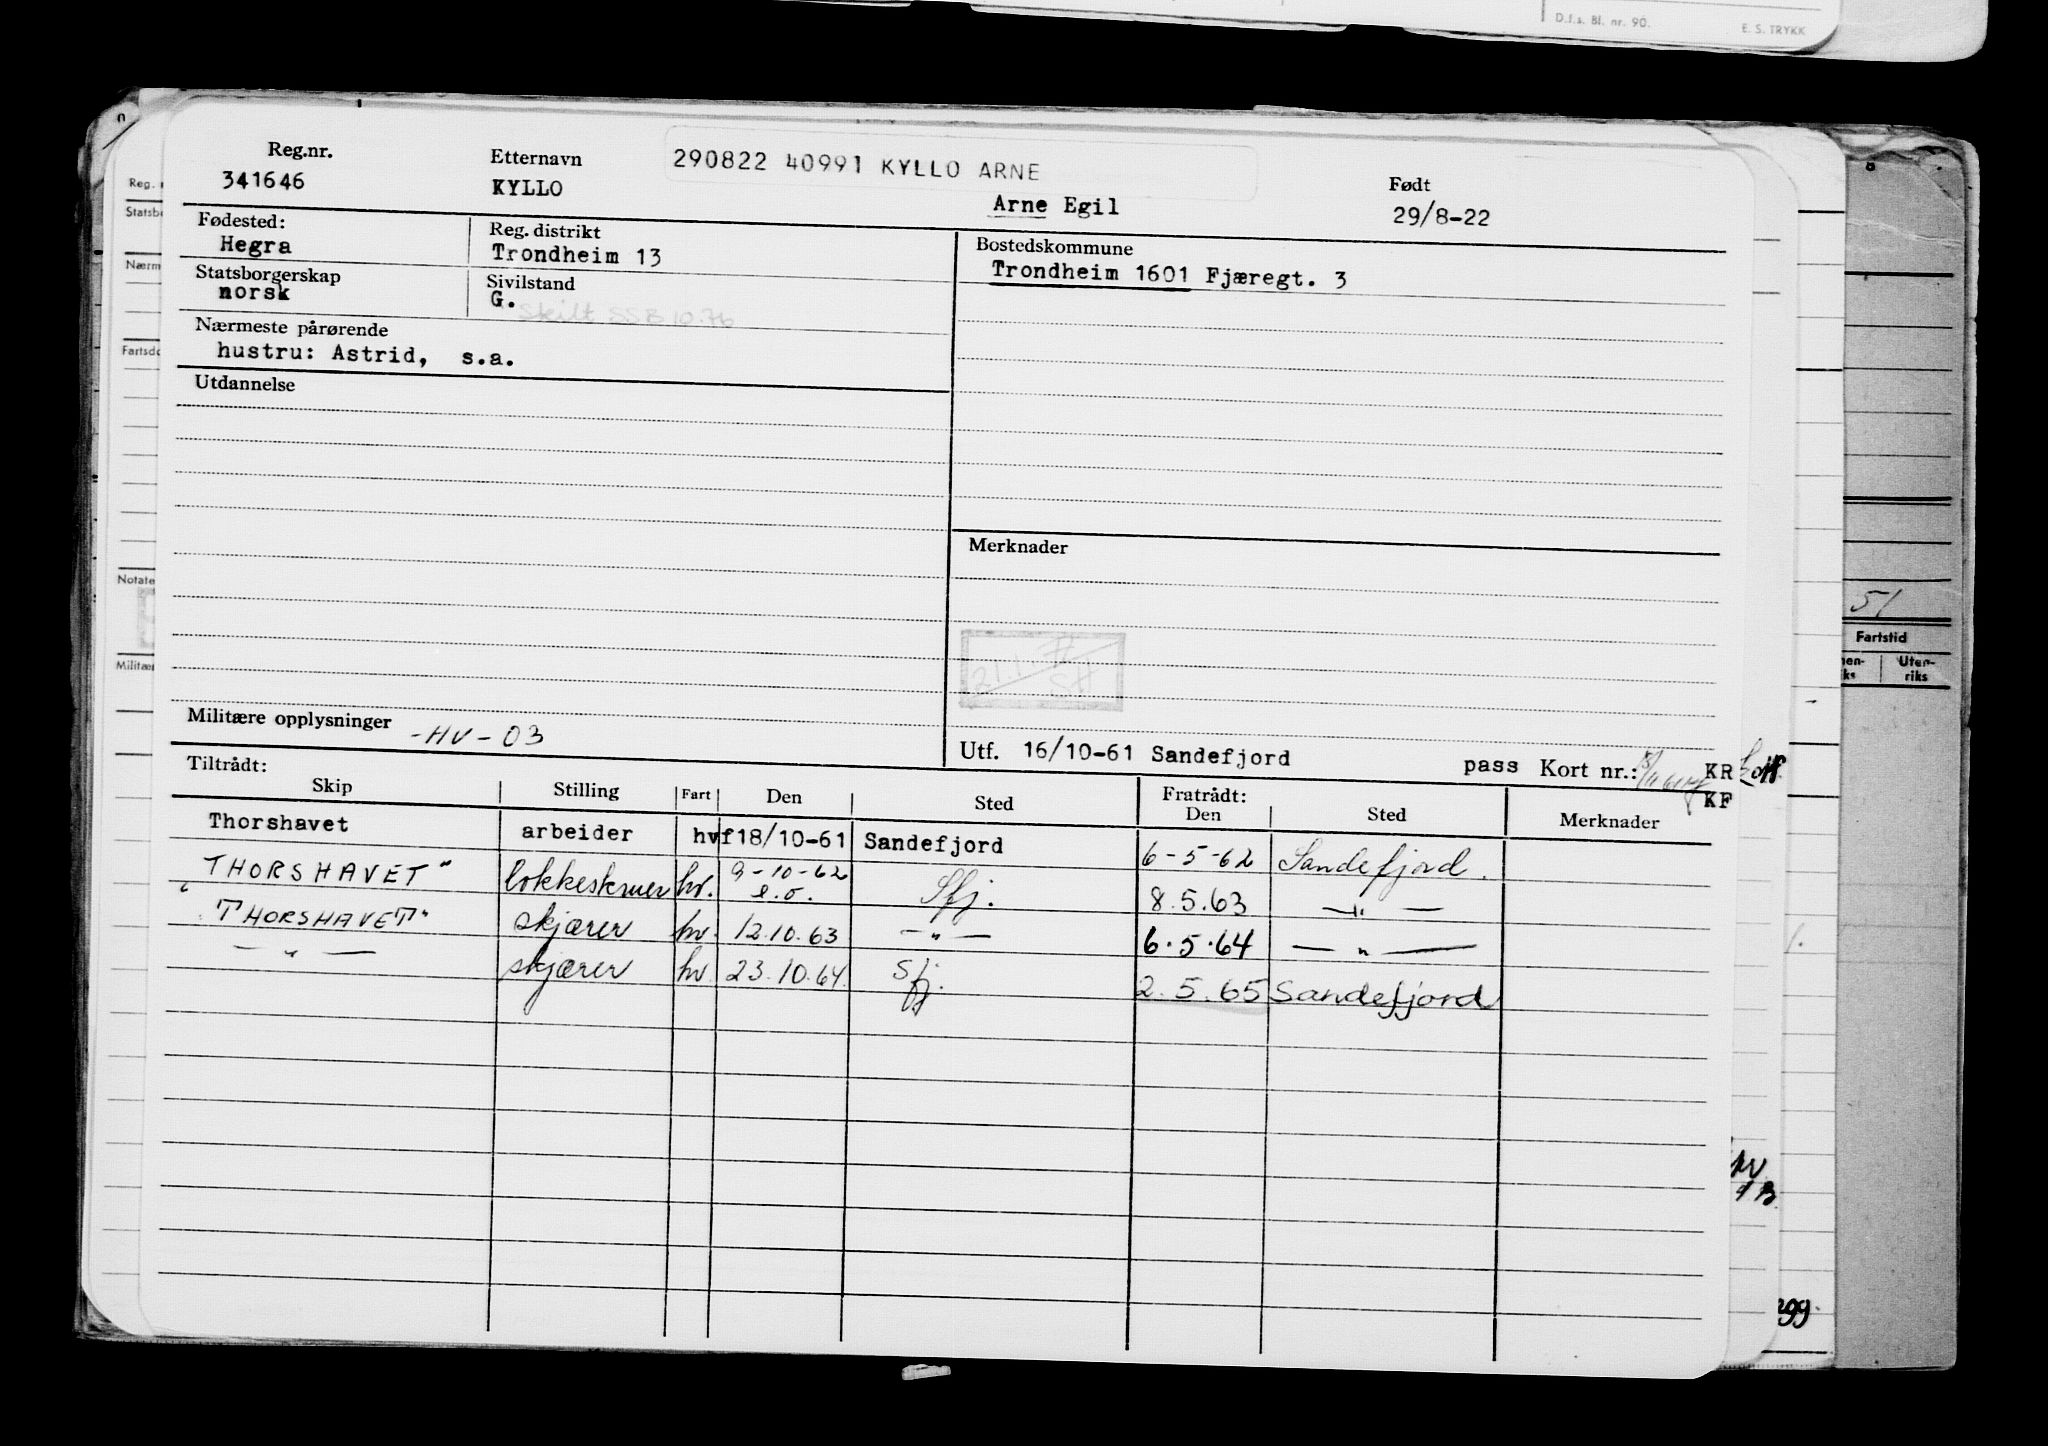 D.f.s. Bl. nr. 90.
E. S. TRYKK
Reg.nr.
341646
Etternavn
KYLLO
290822 40991 KYLLO ARNE
Arne Egil
Født
29/8-22
Fødested:
Hegra
Reg. distrikt
Trondheim 13
Bostedskommune
Trondheim 1601 Fjæregt. 3
Statsborgerskap
norsk
Sivilstand
G.
Skilt SSB 10.76
Nærmeste pårørende
hustru: Astrid, s.a.
Utdannelse
Merknader
Militære opplysninger -HV-03
Utf. 16/10-61 Sandefjord pass Kort nr.: KR
KF
Tiltrådt:
Skip Stilling Fart Den Sted Fratrådt: Den Sted Merknader
Thorshavet arbeider hvf 18/10-61 Sandefjord 6-5-62 Sandefjord.
"THORSHAVET" lokkeskruer hv. 9-10-62 Sfj. 8.5.63 — " —
"THORSHAVET" skjærer hv. 12.10.63 — " — 6.5.64 — " —
— " — skjærer hv. 23.10.64. Sfj. 2.5.65 Sandefjord
51
Fartstid
Uten-
riks
Notate
Militær
299